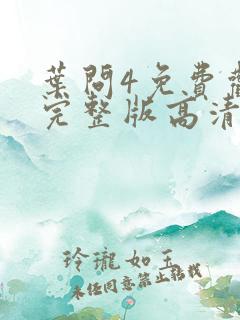 葉問4免費觀
完整版高清
玲瓏如玉
未经同意禁止转载